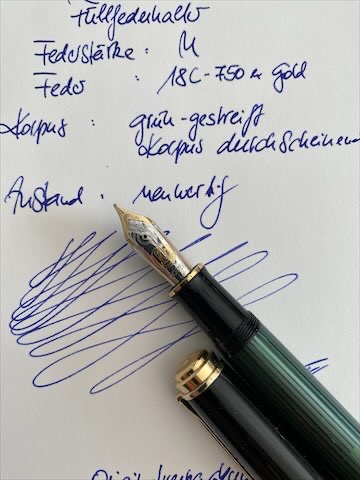 Füllfederhalter
Federstärke : M
Feder : 18C-750er Gold
Korpus : grün-gestreift
Korpus durchscheinend
Zustand : neuwertig